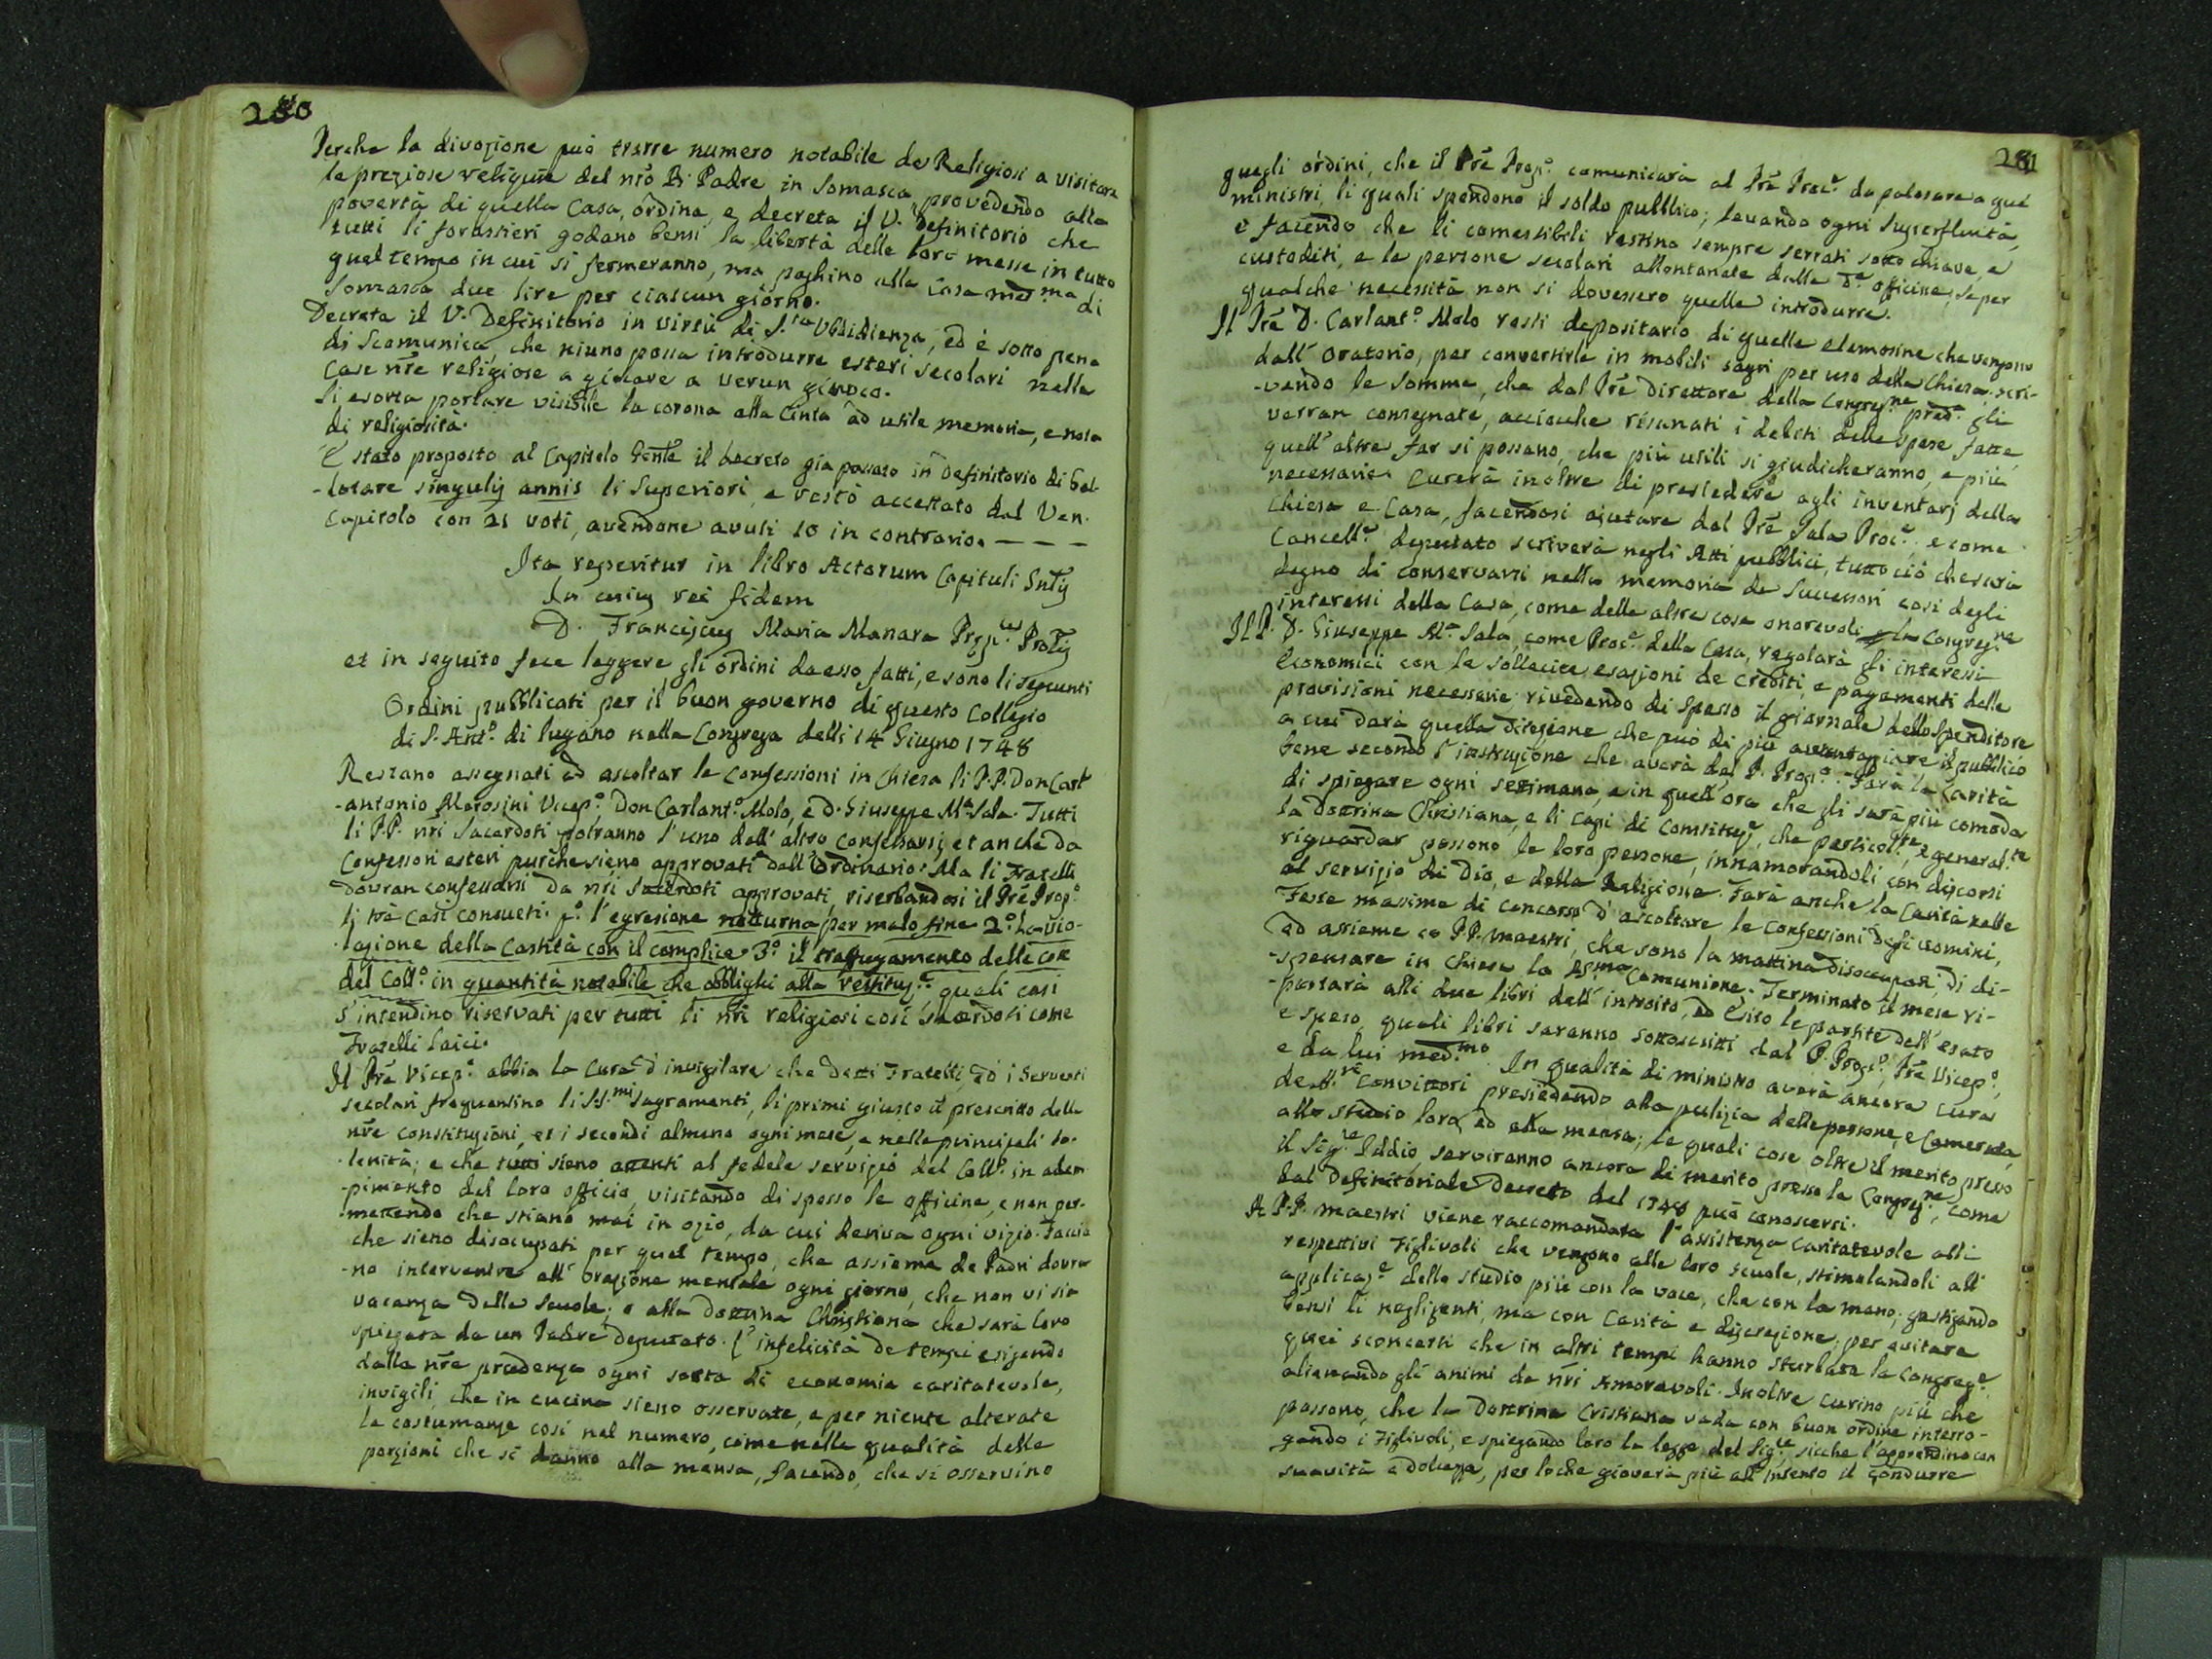 280
Perche la divozione può trarre numero notabile de Religiosi a visitare
le preziose reliquie del nrō B. Padre in Somasca, provedendo alla
povertà di quella Casa, ordina, e decreta il V. Definitorio che
tutti li forastieri godano bensi la libertà delle loro messe in tutto
quel tempo in cui si fermeranno, ma paghino alla Casa med.ma di
Somasca due lire per ciascun giorno.
Decreta il V. Definitorio in virtù di S.ta Ubbidienza, ed è sotto pena
di Scomunica, che niuno possa introdurre esteri secolari nelle
Case nrē religiose a giocare a verun giuoco.
Si esorta portare visibile la corona alla Cinta ad utile memoria, e nota
di religiosità.
E stato proposto al Capitolo Gentē il decreto già passato in Definitorio di bal-
-lotare singulis annis li Superiori, e restò accettato dal Ven.
Capitolo con 21 voti, avendone avuti 10 in contrario. - - -
Ita reperitur in libro Actorum Capituli Gntīs
In cuius rei fidem
D. Franciscus Maria Manara Prep.tus Prolis
et in seguito fece leggere gli ordini da esso fatti, e sono li seguenti
Ordini pubblicati per il buon governo di questo Collegio
di S. Ant.o di lugano nella Congrega delli 14 Giugno 1748
Restano assegnati ad ascoltar le Confessioni in Chiesa li P.P. Don Carl'
-antonio Morosini Vicep.o Don Carlant.o Molo, e D. Giuseppe M.a Sala. Tutti
li P.P. nrī Sacerdoti potranno l'uno dell'altro confessarsi, et anche da
Confessori esteri purche sieno approvati dall'Ordinario: Ma li Fratelli
dovran confessarsi da nrī Sacerdoti approvati, riserbandosi il Prē Prop.o
li trè Casi consueti. p.o l'egresione notturna per malo fine 2.o La vio-
-lazione della Castità con il complice. 3.o il trafugamento delle cose
del Coll.o in quantità notabile che obblighi alla restituz.e quali casi
s'intendino riservati per tutti li nrī religiosi cosi sacerdoti come
Fratelli laici.
Il Prē Vicep.o abbia la Cura d'invigilare che detti Fratelli, ed i Serventi
secolari frequentino li SS.mi Sagramenti, li primi giusto il prescritto delle
nrē constituzioni, et i secondi almeno ogni mese, e nelle principali so-
-lenità; e che tutti sieno attenti al fedele servizio del Coll.o in adem-
-pimento del loro officio, visitando di spesso le officine, e non per-
-mettendo che stiano mai in ozio, da cui deriva ogni vizio. Faccia
che sieno disocupati per quel tempo, che assieme de Padri dovran-
-no intervenire all'orazione mentale ogni giorno, che non vi sia
vacanza delle Scuole; e alla dottrina Christiana che sarà loro
spiegata da un Padre deputato. L'infelicità de tempi esigendo
dalla nrā prudenza ogni sorta di economia caritatevole,
invigili, che in cucina sieno osservate, e per niente alterate
le costumanze cosi nel numero, come nella qualità delle
porzioni che si danno alla mensa, facendo, che si osservino
281
quegli ordini, che il Prē Prop.o comunicarà al Prē Proc.e da palesare a quei
ministri, li quali spendono il soldo pubblico; levando ogni superfluità,
e facendo che li comestibili restino sempre serrati sotto chiave, e
custoditi, e le persone secolari allontanate dalle d.e officine, se per
qualche necessità non si dovessero quelle introdurre.
Il Prē D. Carlant.o Molo resti depositario di quelle elemosine che vengono
dall'oratorio, per convertirle in mobili sagri per uso della Chiesa, scri-
-vendo le somme, che dal Prē Direttore della Congreg.ne pred.a gli
verran consegnate, acciocche risanati i debiti delle spese fatte,
quell'altre far si possano, che più utili si giudicheranno, e più
necessarie. Curerà inoltre di presiedere agli inventarj della
Chiesa e Casa, facendosi ajutare dal Prē Sala Proc.e e come
Cancell.e deputato scriverà negli Atti pubblici, tutto ciò che sarà
degno di conservarsi nella memoria de Successori cosi degli
interessi della Casa, come delle altre cose onorevoli la Congreg.ne
Il P. D. Giuseppe M.a Sala, come Proc.e della Casa, regolarà gli interessi
Economici con le sollecite esazioni de crediti, e pagamenti delle
provisioni necessarie; rivedendo di spesso il giornale dello Spenditore
a cui darà quella direzione che può di più avvantagiare il pubblico
bene secondo l'instruzione che averà dal P. Prop.o. Farà la Carità
di spiegare ogni settimana, e in quell'ora che gli sarà più comoda
la dottrina Christiana, e li Capi di Constituz.e, che particol.te, e general.te
riguardar possono le loro persone, innamorandoli con discorsi
al servizio di Dio, e della Religione. Farà anche la Carità nelle
Feste massime di concorso d'ascoltare le Confessioni degli uomini,
ed assieme co PP. maestri, che sono la mattina disoccupati, di di-
-spensare in Chiesa la SS.ma Comunione. Terminato il mese ri-
-portarà alli due libri dell'introito, ed Esito le partite dell'esato
e speso, quali libri saranno sottoscritti dal P. Prop.o, Prē Vicep.o,
e da lui med.mo. In qualità di ministro averà ancora cura
de SS.ri Convittori presiedendo alla pulizia delle persone, e Camerata,
allo studio loro, ed alla mensa; le quali cose oltre il merito presso
il Sig.re Iddio, serviranno ancora di merito presso la Congreg.ne, come
dal Definitoriale Decreto del 1748 può conoscersi.
A P.P. maestri viene raccomandata l'assistenza caritatevole alli
respettivi Figlivoli che vengono alle loro scuole, stimolandoli all'
applicaz.e dello studio più con la voce, che con la mano; gastigando
bensi li negligenti, ma con Carità e discrezione, per evitare
quei sconcerti che in altri tempi hanno sturbata la Congreg.e,
alienando gli animi de nrī Amorevoli. Inoltre curino più che
possono, che la Dottrina Cristiana vada con buon ordine interro-
gando i Figlivoli, e spiegando loro la legge del Sig.re, sicche l'apprendino con
suavità e dolcezza, per loche gioverà più all'intento il condurre